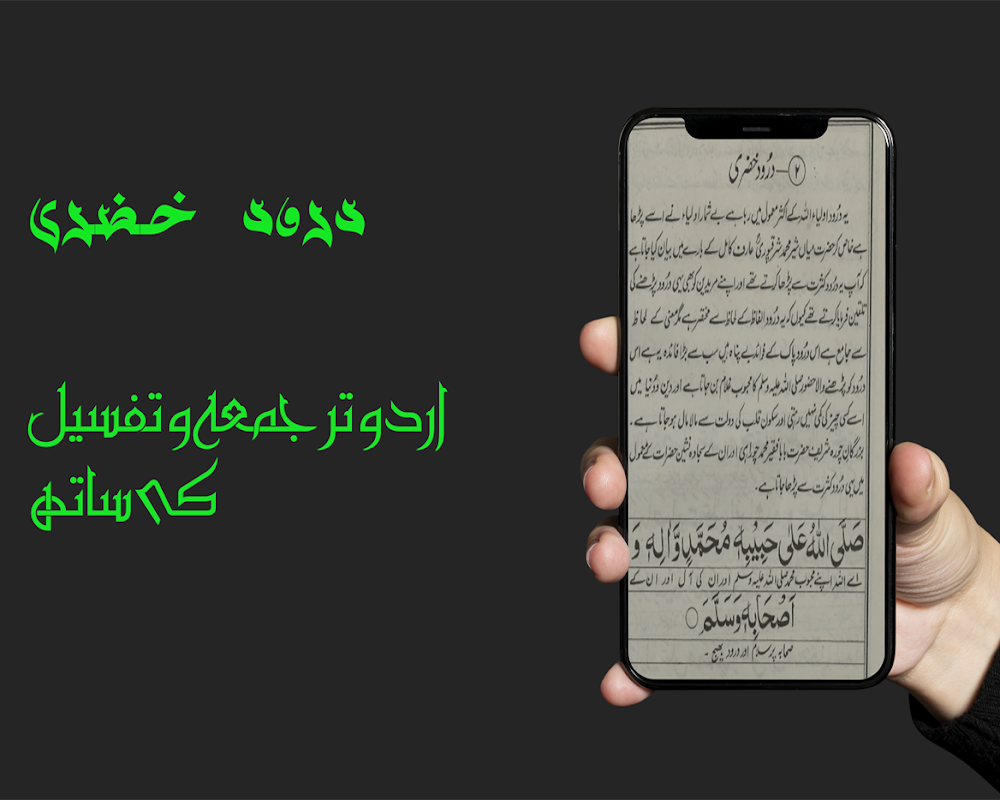 درود خضدی
اردو ترجمعہ و تفسیل
کی ساتھ
۲ — درُود خضری
یہ درُود اولیاء اللہ کے اکثر معمول میں رہا ہے بے شمار اولیاء نے اسے پڑھا
ہے خاص کر حضرت میاں شیر محمد شرقپوریؒ عارف کامل کے بارے میں بیان کیا جاتا ہے
کہ آپ یہ درُود کثرت سے پڑھا کرتے تھے اور اپنے مریدین کو بھی یہی درُود پڑھنے کی
تلقین فرمایا کرتے تھے کیوں کہ یہ درُود الفاظ کے لحاظ سے مختصر ہے مگر معنی کے لحاظ
سے جامع ہے اس درُود پاک کے فوائد بے پناہ ہیں سب سے بڑا فائدہ یہ ہے اس
درُود کو پڑھنے والا حضور صلی اللہ علیہ وسلم کا محبوب غلام بن جاتا ہے اور دین و دُنیا میں
اسے کسی چیز کی کمی نہیں رہتی اور سکون قلب کی دولت سے مالا مال ہو جاتا ہے۔
بزرگان چورہ شریف حضرت بابا فقیر محمد چوراہی اور ان کے سجادہ نشین حضرت کے معمول
میں یہی درُود کثرت سے پڑھا جاتا ہے۔
صَلَّى اللهُ عَلٰى حَبِيْبِهٖ مُحَمَّدٍ وَّاٰلِهٖ وَ
اے اللہ اپنے محبوب محمد صلی اللہ علیہ وسلم اور ان کی آل اور ان کے
اَصْحَابِهٖ وَسَلَّمَ ○
صحابہ پر سلام اور درود بھیج ۔